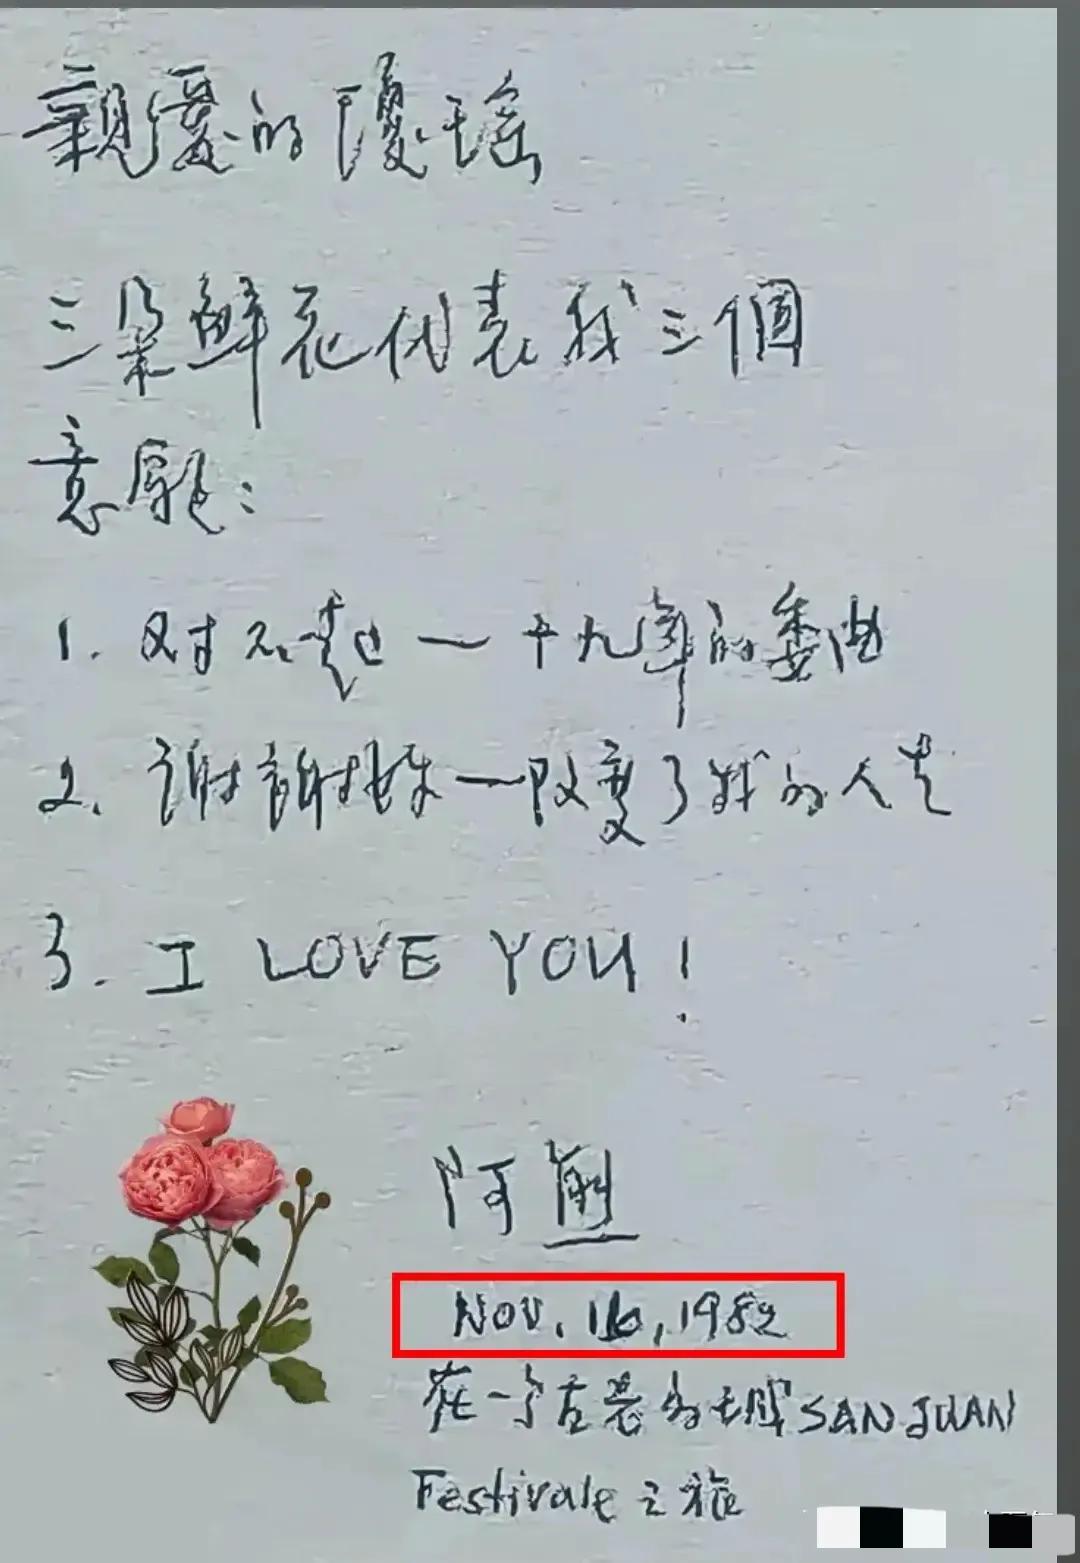 親愛的瓊瑤
三朵鮮花代表我三個
意願：
1. 对不起—十九年的委曲
2. 謝謝妳—改变了我的人生
3. I LOVE YOU!
阿
NOV. 16, 1982
在 SAN JUAN
Festivale 之旅